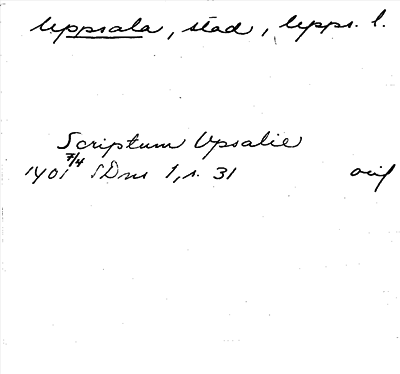 Uppsala, stad, Upps. l.
Scriptum Upsalie
1401 7/4 SDns 1, s. 31 avskr